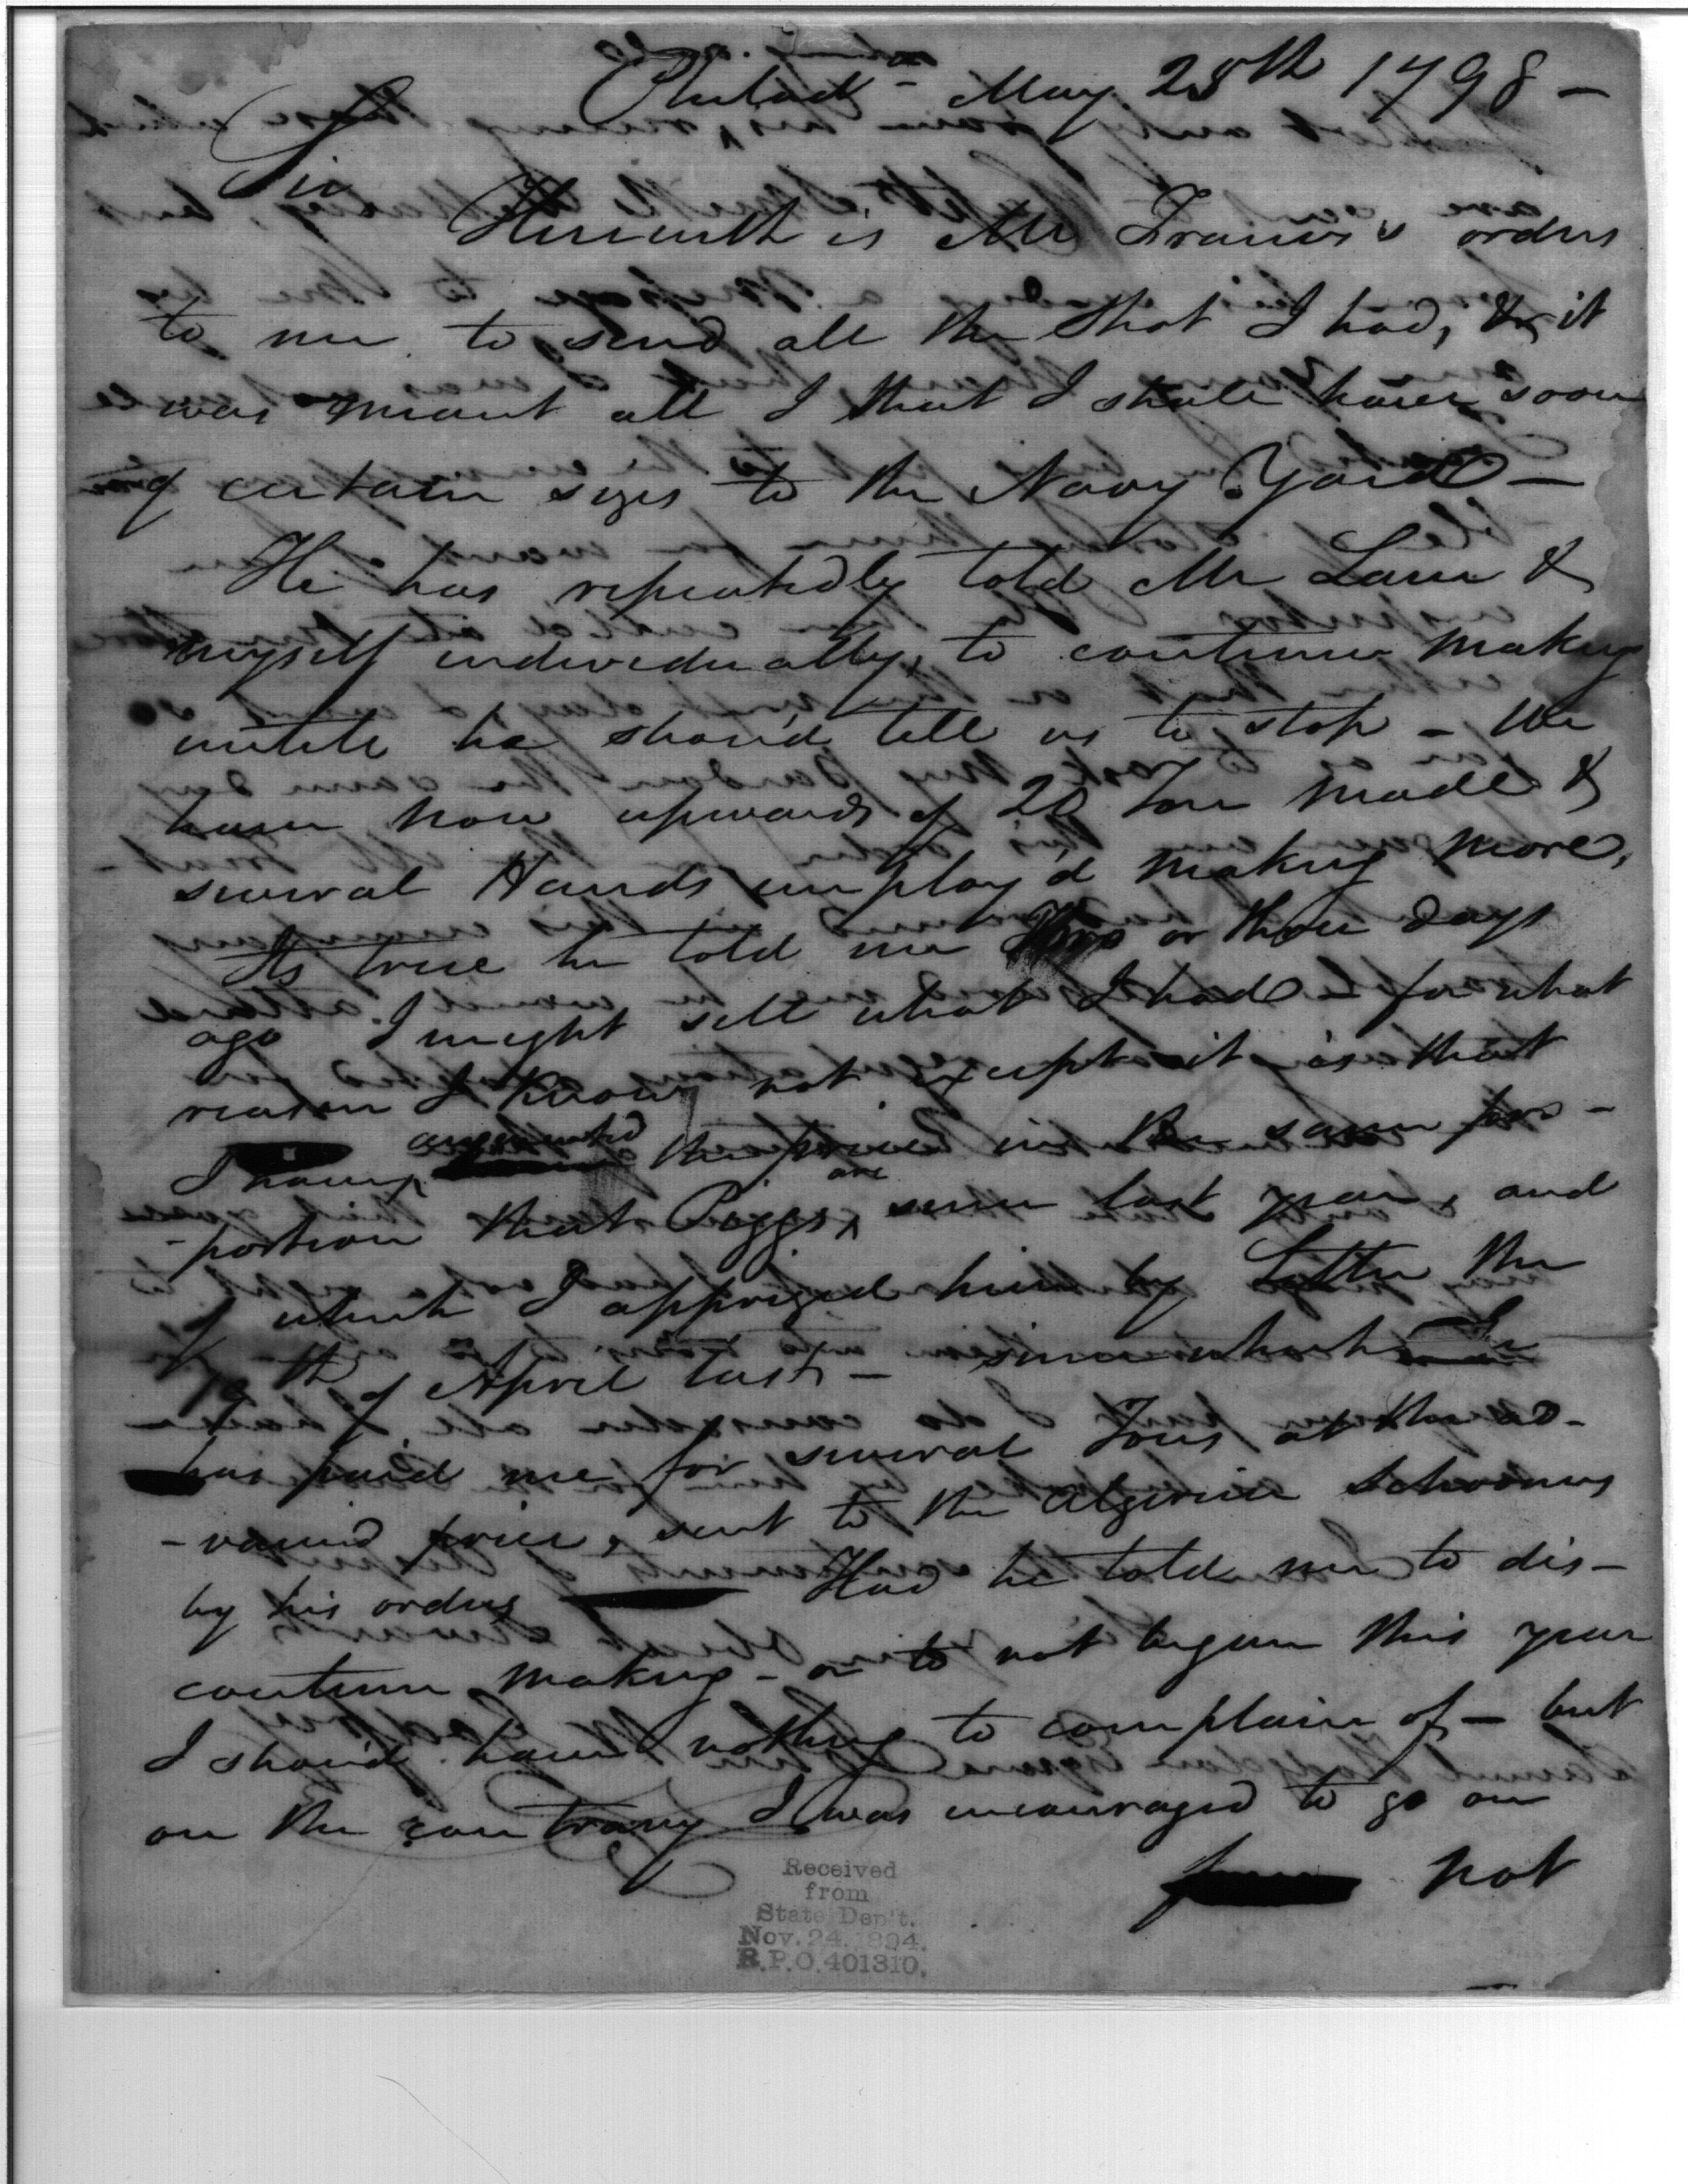 Philad<sup>a</sup> - May 25th 1798 -
Sir
Herewith is Mr Francis's orders
to me to send all the Shot I had, & it
was meant all I that I shall have soon
of certain sizes to the Navy Yard -
He has repeatedly told Mr Lane &
myself individually, to continue making
untill he should tell us to stop - We
have now upwards of 20 Ton made &
several Hands employ'd making more,
Its true he told me Two or three days
ago I might sell what I had - for what
reason I know not except it is that
I have augmented the price in the same pro-
-portion that Piggs are since last year, and
of which I apprized him by Letter the
19th of April last - since which he
has paid me for several Tons at the ad-
-vanced price, sent to the Algerine Schooners
by his orders Had he told me to dis-
continue making - or to not begun this year
I should have nothing to complain of - but
on the contrary I was encouraged to go on
not
Received
from
State Dep't.
Nov. 24. 1894.
R.P.O. 401310.